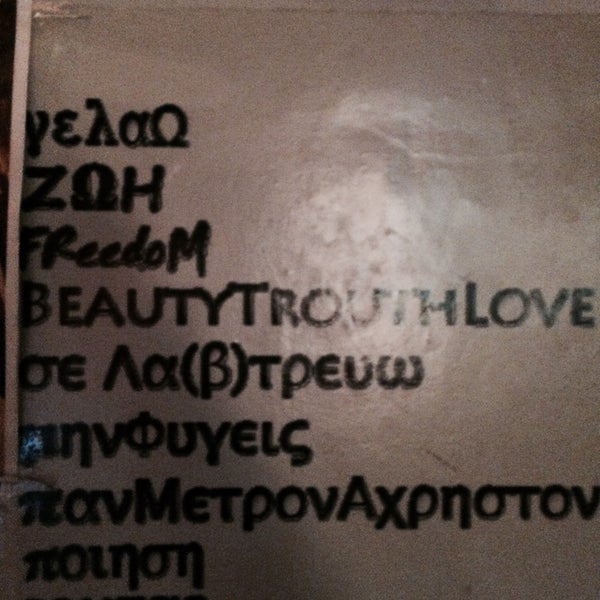 γελαΩ
ΖΩΗ
FReedoM
BEAUTYTROUTHLOVE
σε Λα(β)τρευω
μηνΦυγεις
πανΜετρονΑχρηστον
ποιηση